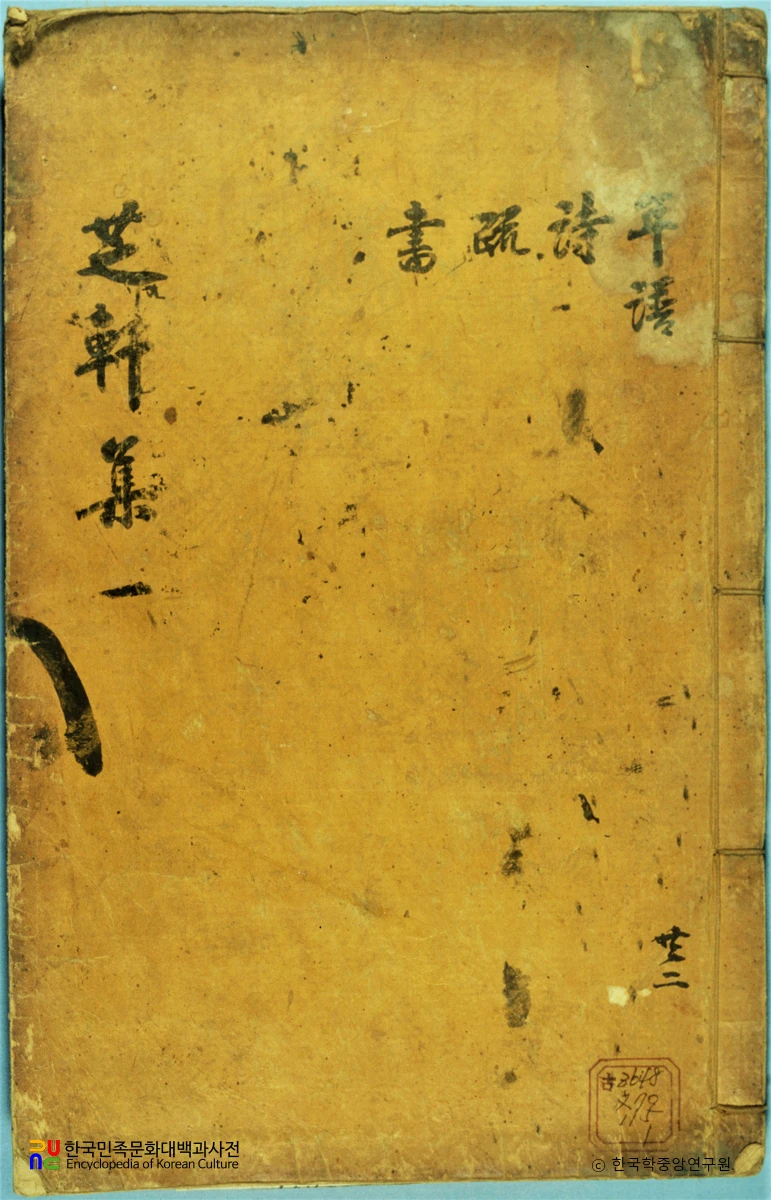 年譜
詩
疏
書
芝軒集 一
共二
古3648
1
한국민족문화대백과사전
Encyclopedia of Korean Culture
© 한국학중앙연구원